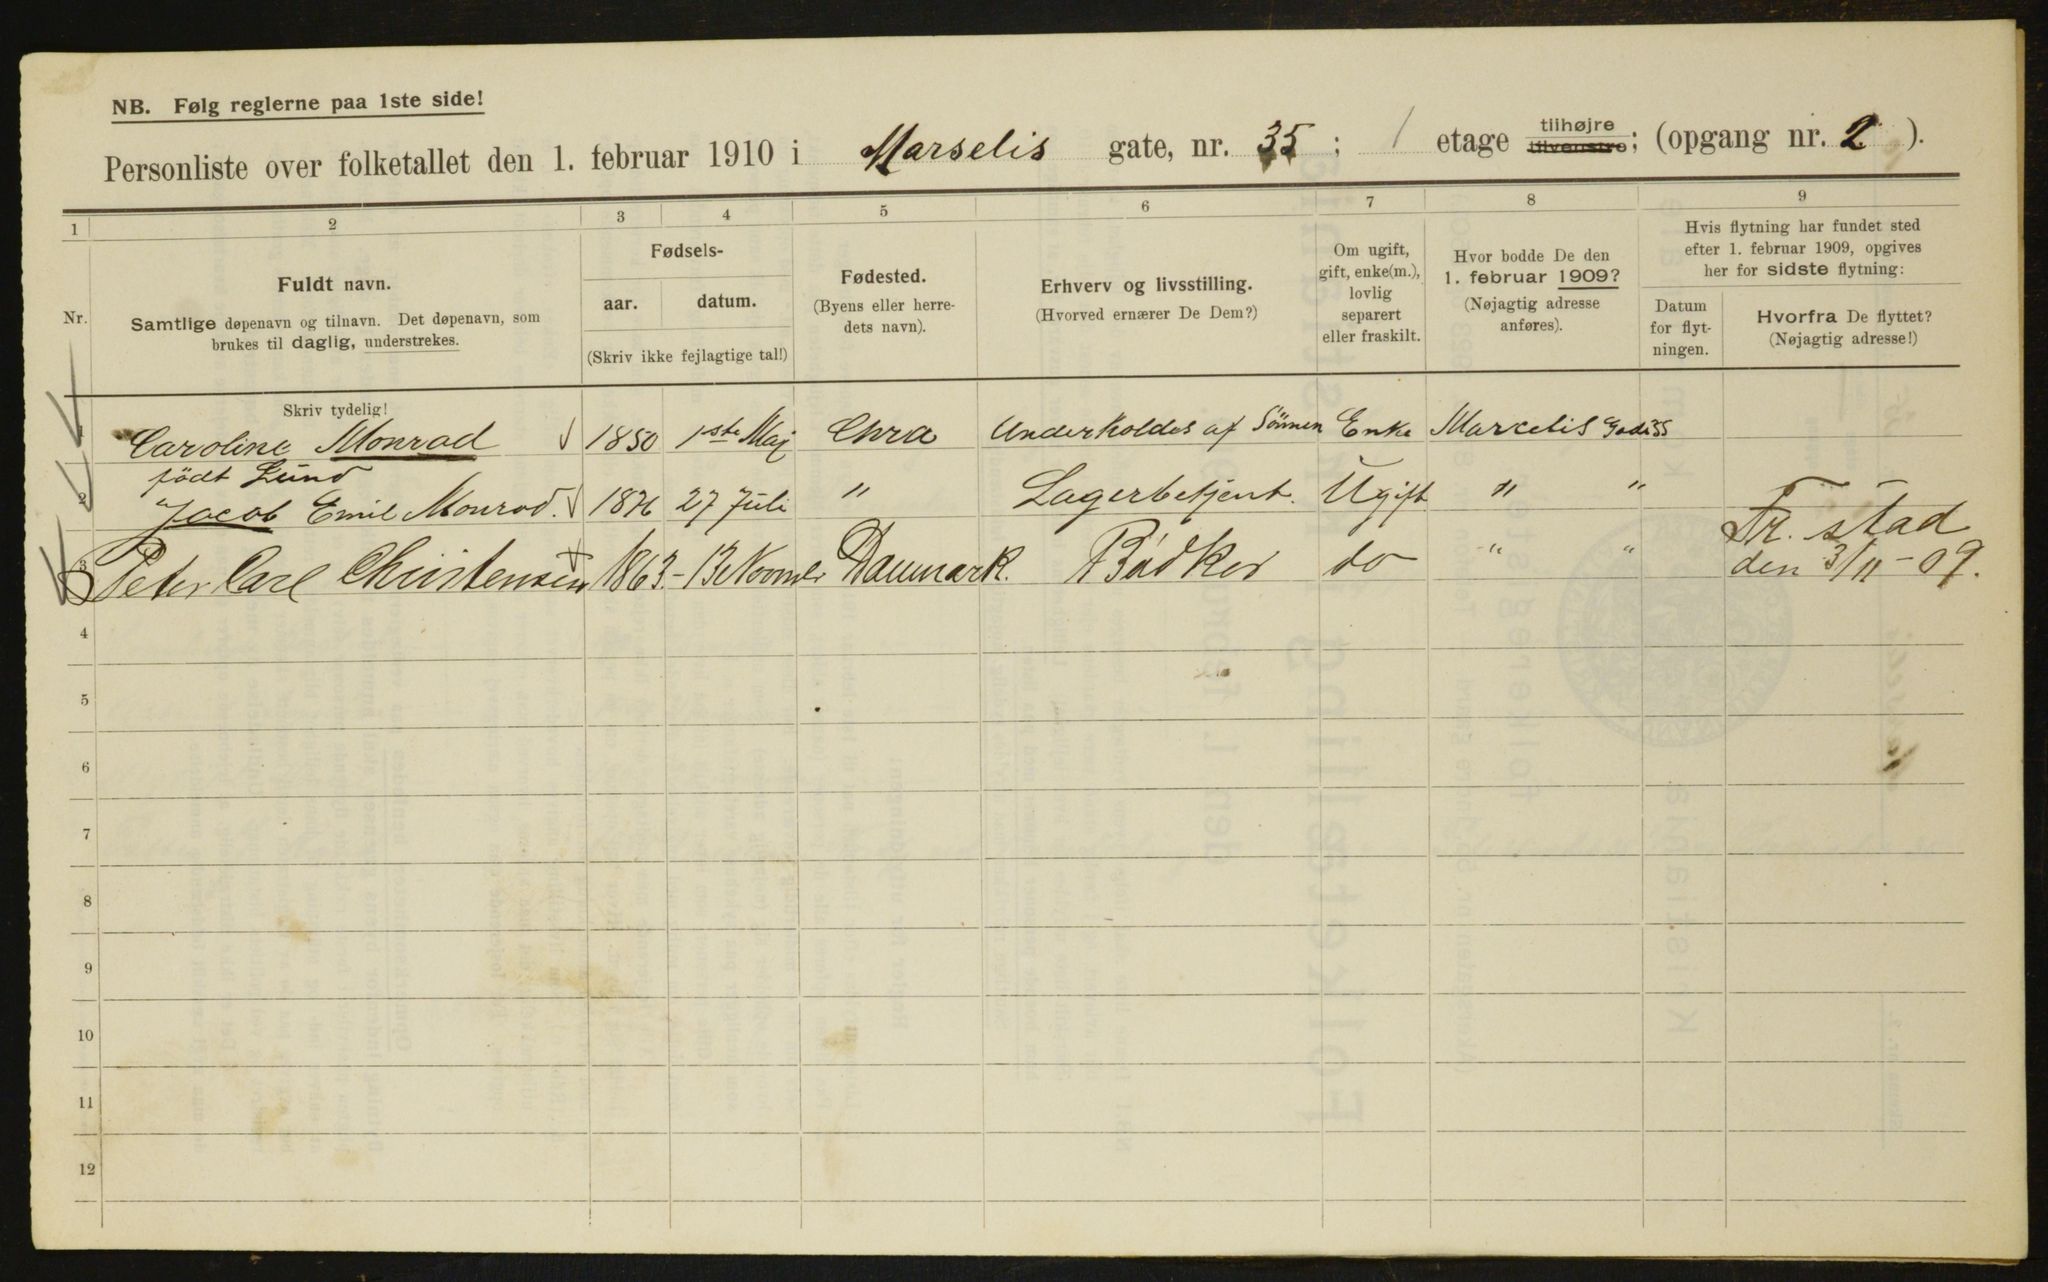 NB. Følg reglerne paa 1ste side!
Personliste over folketallet den 1. februar 1910 i Marselis gate, nr. 35; 1 etage tilhøjre tilvenstre; (opgang nr. 2).
1 2 3 4 5 6 7 8 9
Nr.
Fuldt navn.
Samtlige døpenavn og tilnavn. Det døpenavn, som
brukes til daglig, understrekes.
Skriv tydelig!
Fødsels-
aar. datum.
(Skriv ikke fejlagtige tal!)
Fødested.
(Byens eller herre-
dets navn).
Erhverv og livsstilling.
(Hvorved ernærer De Dem?)
Om ugift,
gift, enke(m.),
lovlig
separert
eller fraskilt.
Hvor bodde De den
1. februar 1909?
(Nøjagtig adresse
anføres).
Hvis flytning har fundet sted
efter 1. februar 1909, opgives
her for sidste flytning:
Datum
for flyt-
ningen.
Hvorfra De flyttet?
(Nøjagtig adresse!)
1 Caroline Monrad 1850 1ste Maj Chra Underholdes af Sönnen Enke Marcelis Gade 35
født Lund
2 Jacob Emil Monrad. 1876 27 Juli " Lagerbetjent. Ugift " "
3 Peter Carl Christensen 1863. - 13 Danmark. Bödker do " " Fr. stad
den 3/11 - 09.
4
5
6
7
8
9
10
11
12